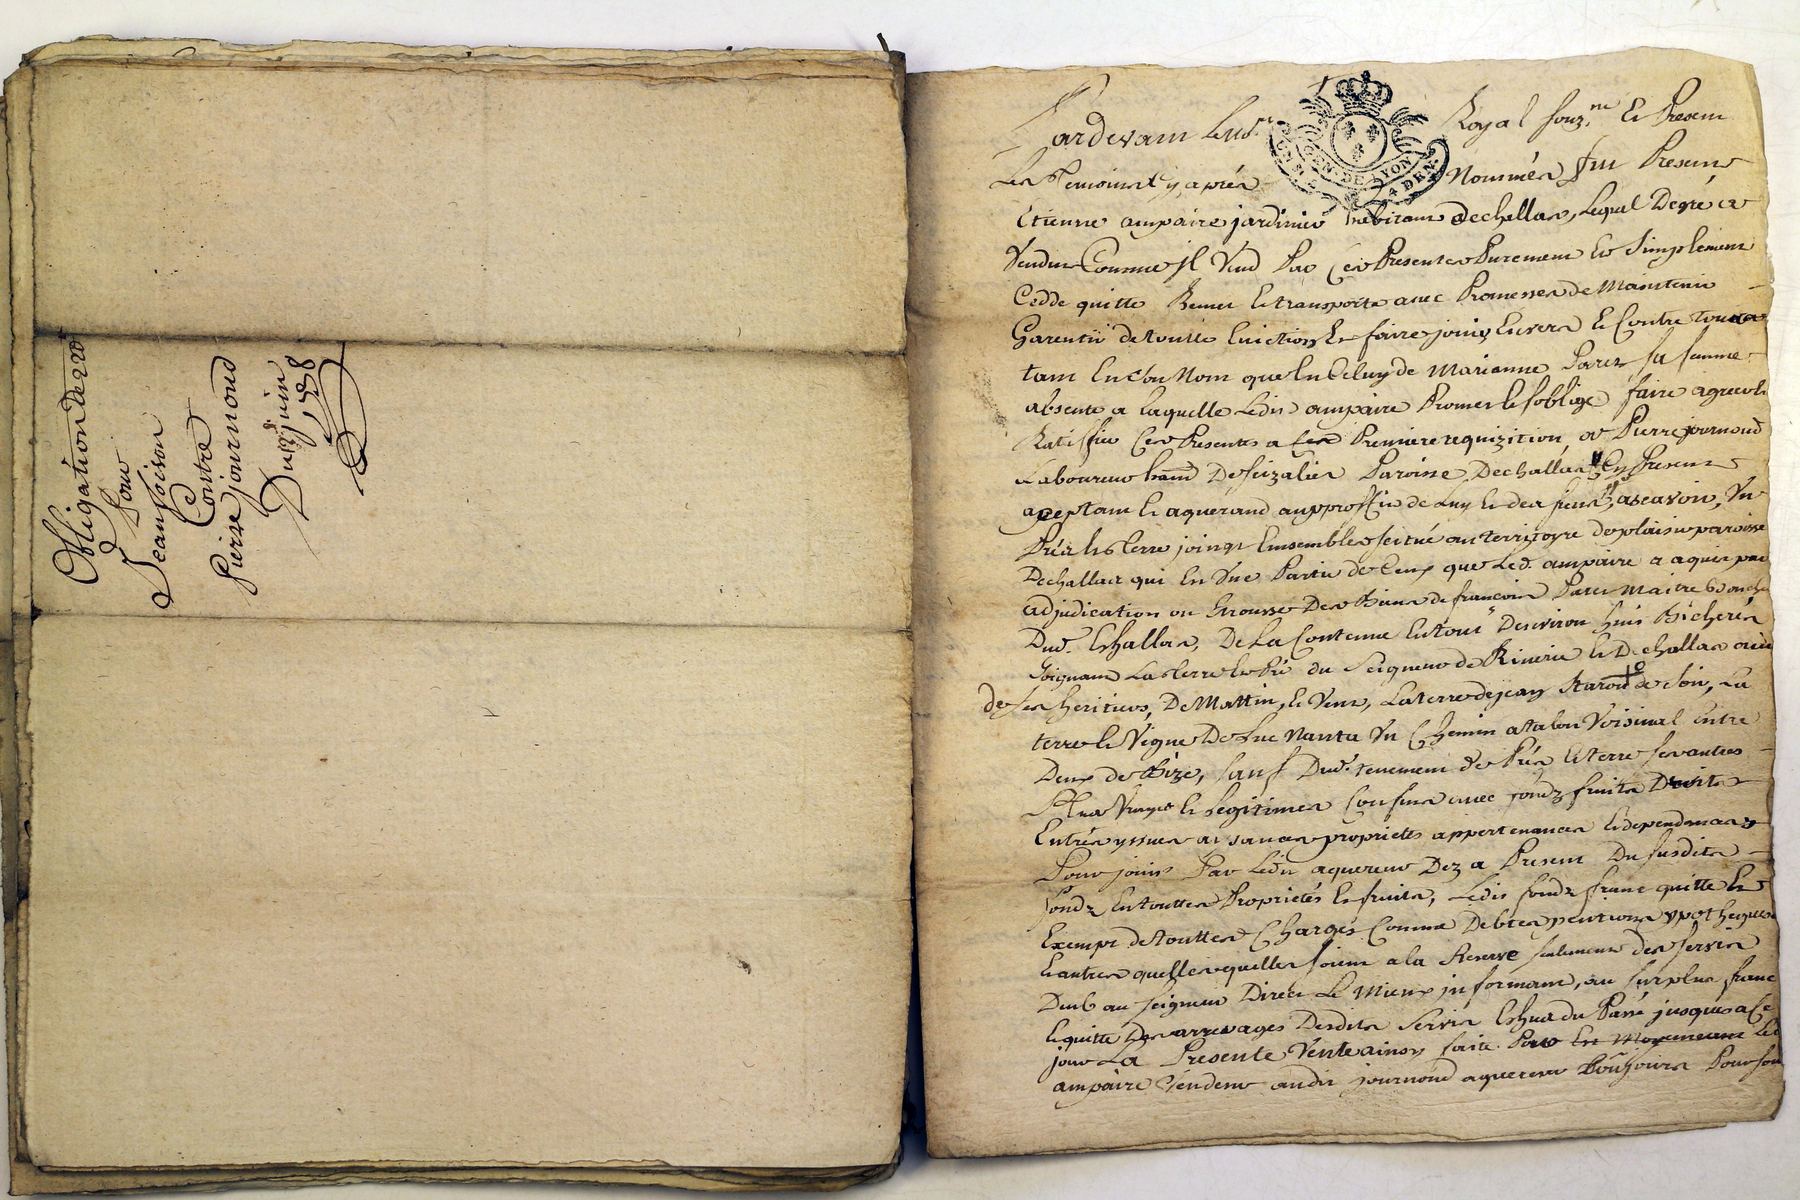 Obligation De 220
Pour
Jean foison
Contra
Pierre journoud
Du juin
Pardevant le no.re Royal souz.ne Et Present
Les Temoins cy aprés Nommés fut Present
Etienne ampaire jardinier habitant dechallas, Lequel De gré a
Vendu Comme jl Vend Par Ces Presentes Purement Et Simplement
Cedde quitte Remet Et transporte avec Promesses de Maintenir
Garentir de toutte Eviction Et faire jouir Envers Et Contre tous
tant En son Nom que En Celuy de Marianne sa femme
absente a laquelle Ledit ampaire Promet Et soblige faire agreer Et
Ratiffier Ces Presentes a Premiere requizition, a Pierre journoud
Laboureur De Paroisse Dechallas Present
aceptant Et aquerand au proffit de Luy Et des siens, ascavoir, Un
Pré Et terre joingt Ensembles scitué au territoyre de plaisir paroisse
Dechallas qui Est Une Partie de Ceux que Led. ampaire a aquis par
adjudication ou Des Biens de francois Maitre
Dud. Eshallas, De La Contenue En tout Denviron huit Bicherés
Joignant La terre Et Pré du Seigneur de Riverie Et Dechallas
de ses heritiers, De Mattin, Et Vent, La terre de jean de Soir, La
terre Et Vigne De Luc Nanta Un Chemin Voisinal Entre
Deux de Bize, sauf Dud. tenement de Pré Et terre ses autres
Plus Vrays Et Legitimes Confins avec fondz fruits Droits
Entrés yssues aisances proprietés appertenances Et dependances
Pour jouir Par Ledit aquereur Dez a Present Du susdits
fondz En touttes Proprietés Et fruits, Ledit fondz franc quitte Et
Exempt de touttes Chargés Comme Debtes pentions ypotheques
Et autres quelles quelles soient a la Reserve seulement des servis
Deub au seigneur Direct Le Mieux jnformant, au surplus franc
Et quitte Des arrerages Desdits Servis Eshus du Passé jusques a Ce
jour La Presente Vente ainsy faite Led
ampaire Vendeur audit journoud aquereur Touhjours Pour son